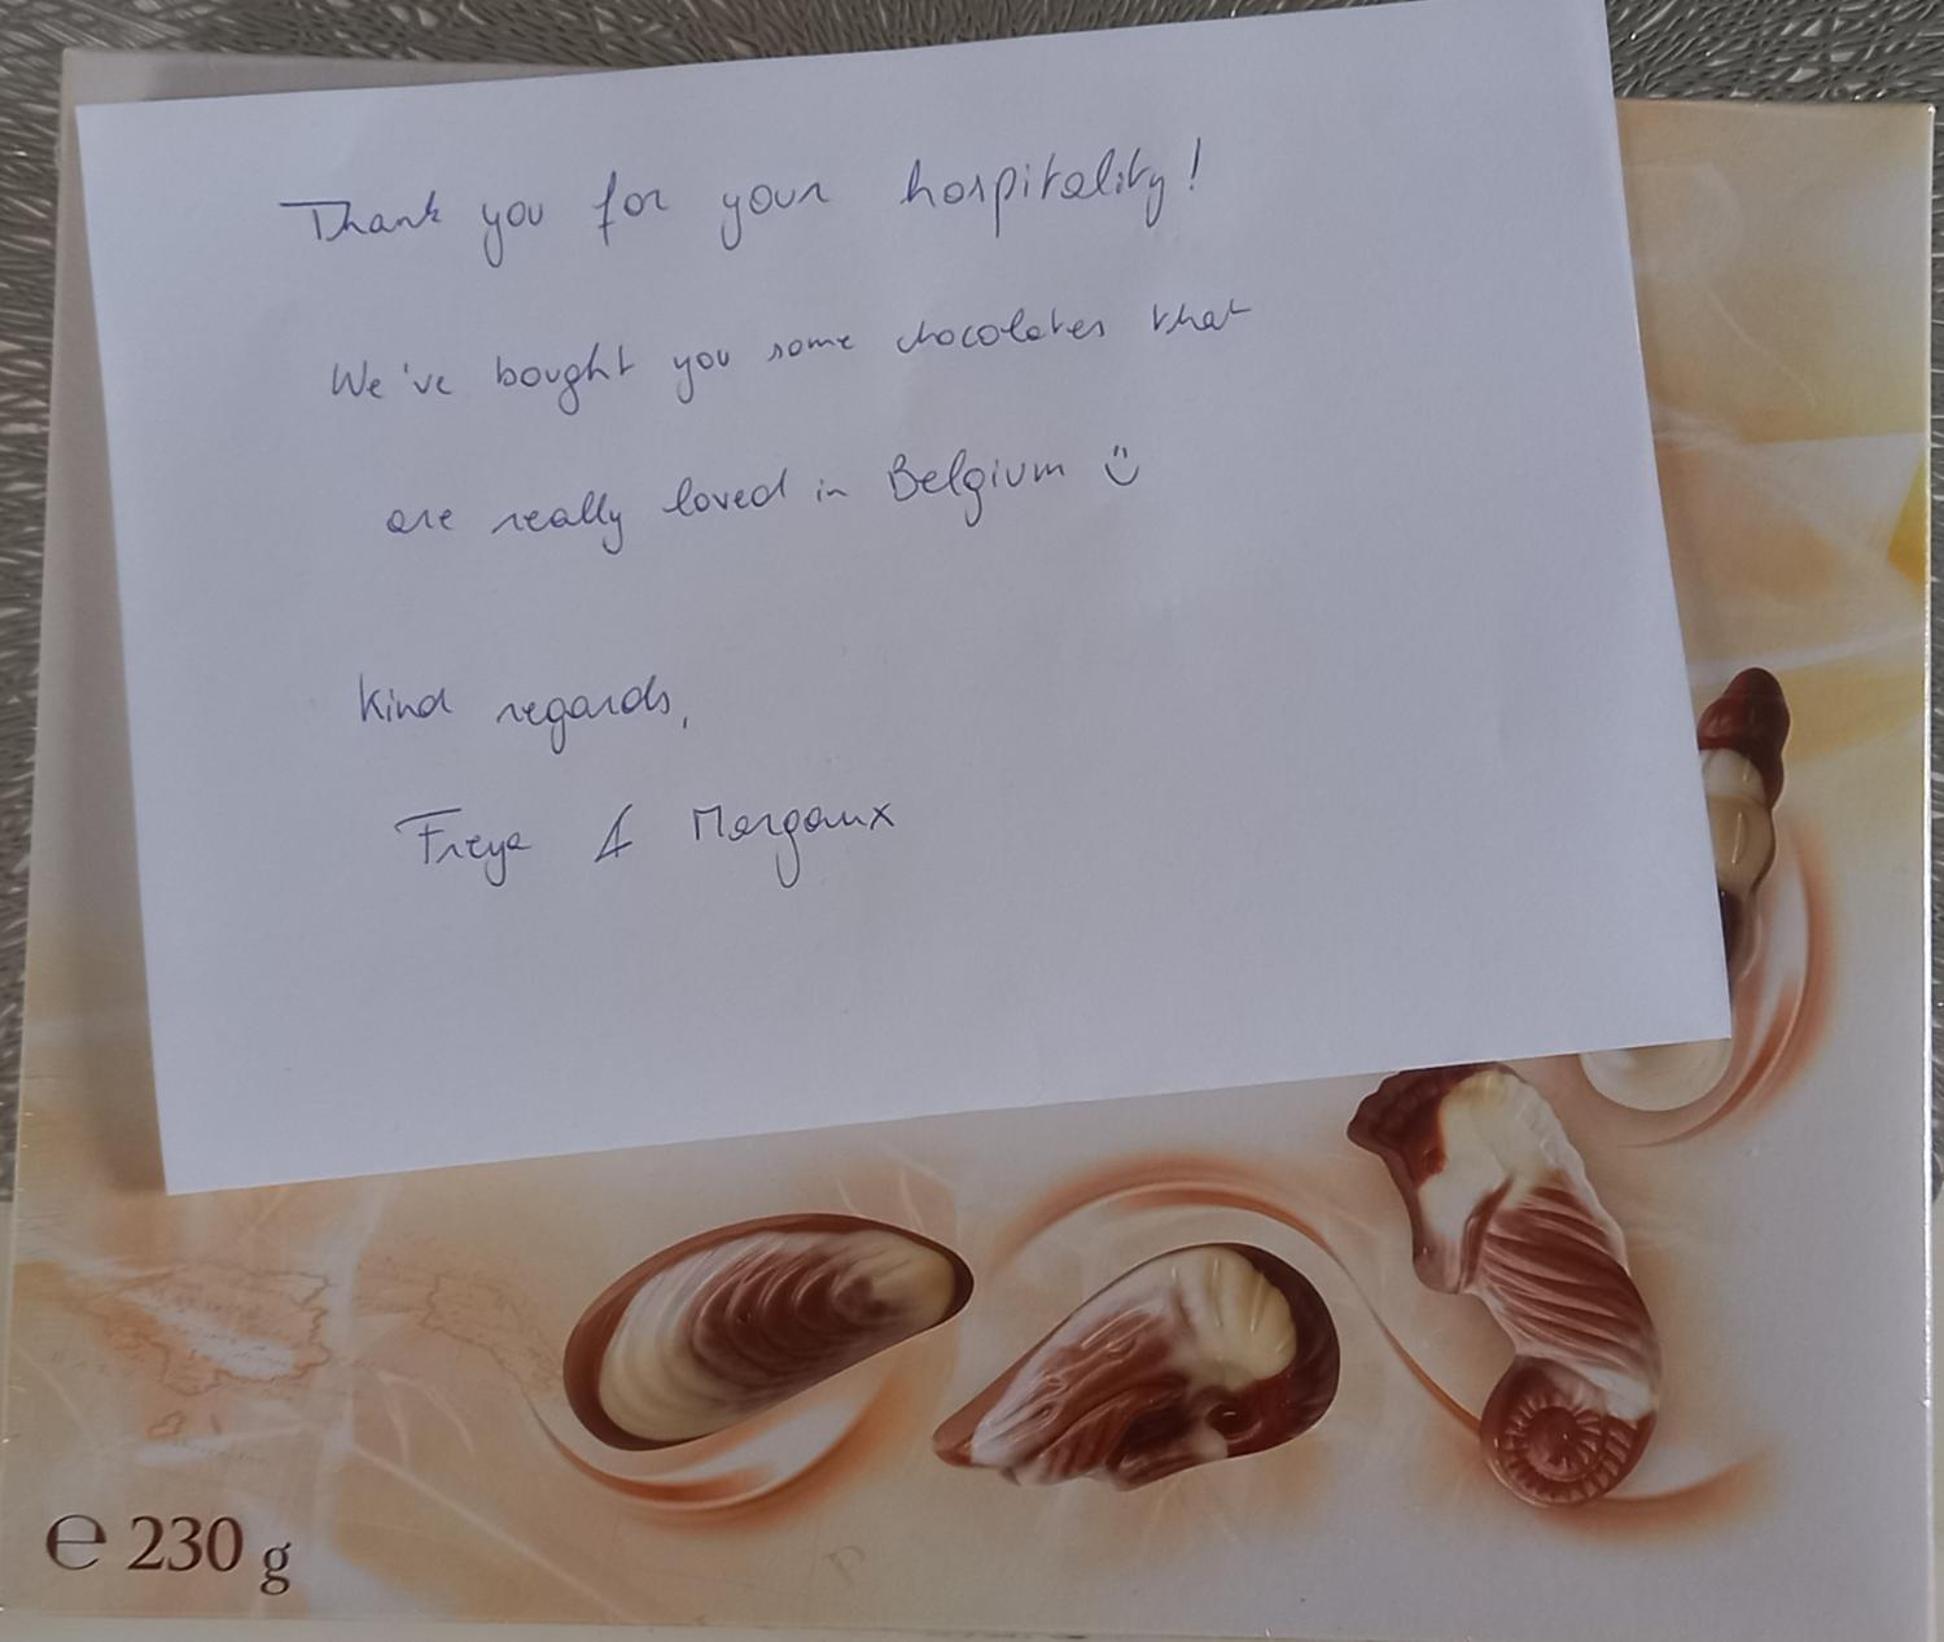 Thank you for your hospitality!
We've bought you some chocolates that
are really loved in Belgium ☺
Kind regards,
Freya & Margaux
℮ 230 g